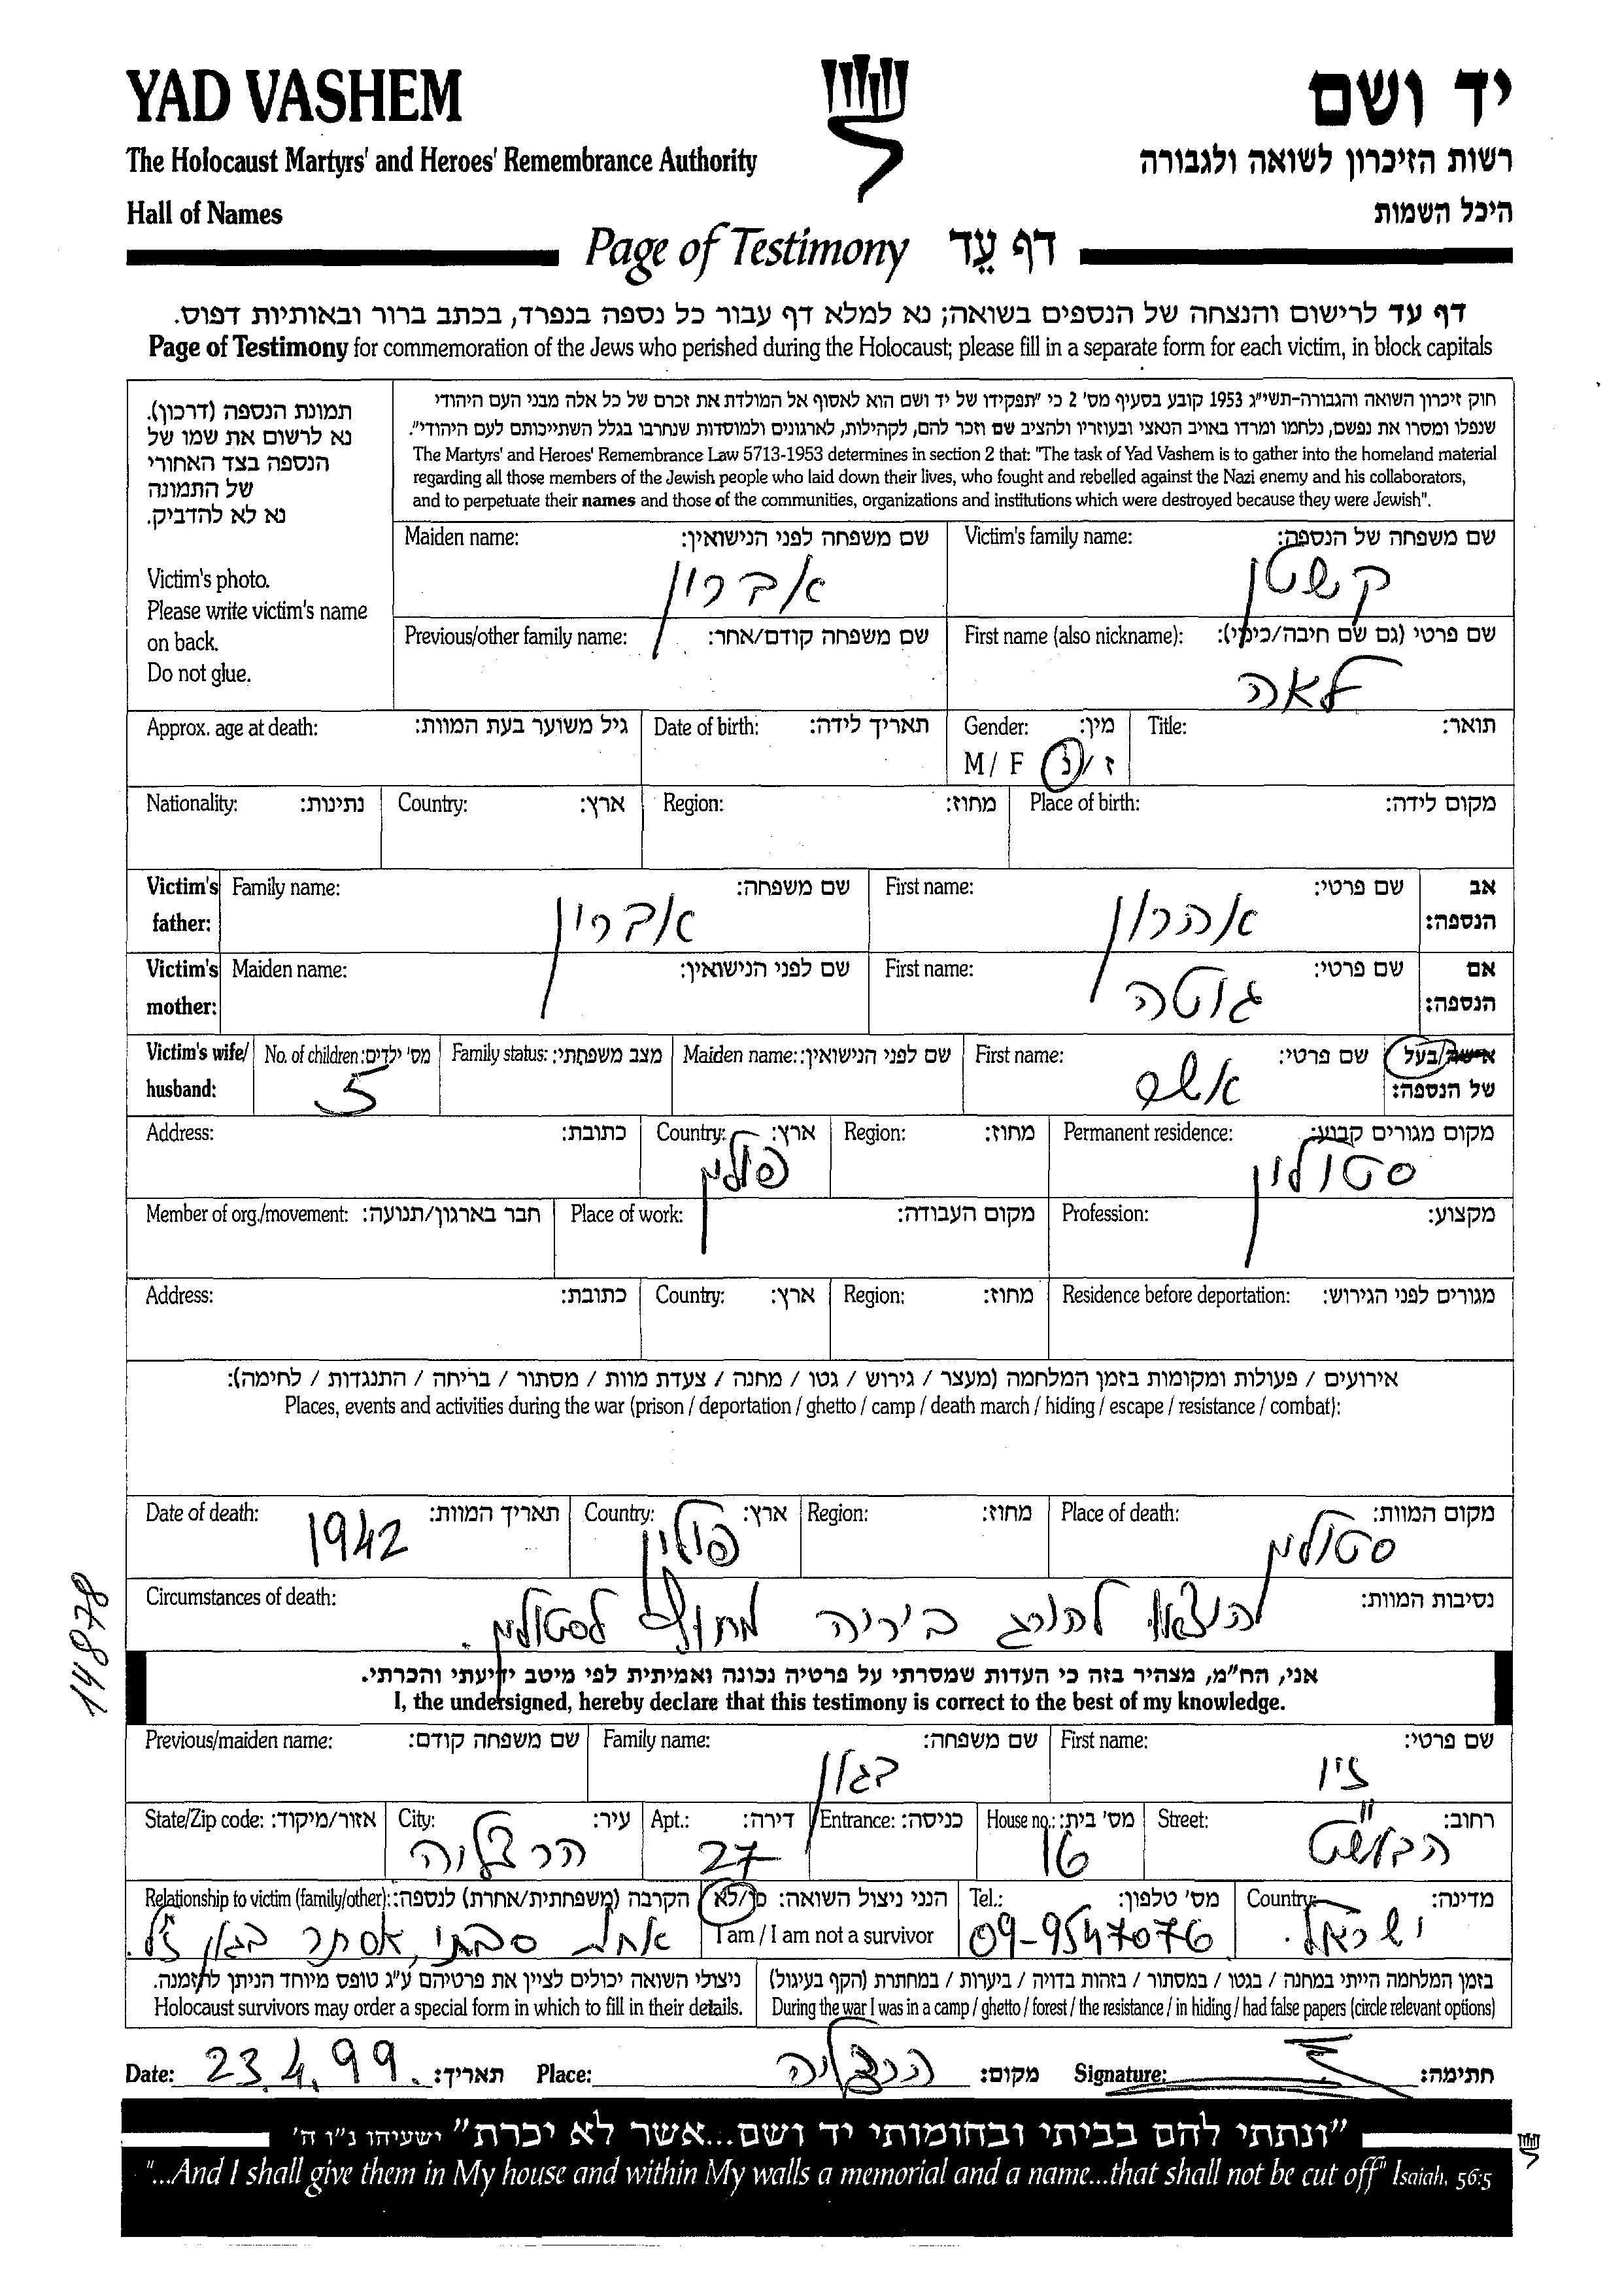 YAD VASHEM
יד ושם
The Holocaust Martyrs' and Heroes' Remembrance Authority
רשות הזיכרון לשואה ולגבורה
Hall of Names
היכל השמות
Page of Testimony דף עֵד
דף עד לרישום והנצחה של הנספים בשואה; נא למלא דף עבור כל נספה בנפרד, בכתב ברור ובאותיות דפוס.
Page of Testimony for commemoration of the Jews who perished during the Holocaust; please fill in a separate form for each victim, in block capitals
תמונת הנספה (דרכון).
נא לרשום את שמו של
הנספה בצד האחורי
של התמונה
נא לא להדביק.
Victim's photo.
Please write victim's name
on back.
Do not glue.
חוק זיכרון השואה והגבורה-תשי"ג 1953 קובע בסעיף מס' 2 כי "תפקידו של יד ושם הוא לאסוף אל המולדת את זכרם של כל אלה מבני העם היהודי
שנפלו ומסרו את נפשם, נלחמו ומרדו באויב הנאצי ובעוזריו ולהציב שם וזכר להם, לקהילות, לארגונים ולמוסדות שנחרבו בגלל השתייכותם לעם היהודי".
The Martyrs' and Heroes' Remembrance Law 5713-1953 determines in section 2 that: "The task of Yad Vashem is to gather into the homeland material
regarding all those members of the Jewish people who laid down their lives, who fought and rebelled against the Nazi enemy and his collaborators,
and to perpetuate their names and those of the communities, organizations and institutions which were destroyed because they were Jewish".
Maiden name: שם משפחה לפני הנישואין: Victim's family name: שם משפחה של הנספה:
אברון קשטן
Previous/other family name: שם משפחה קודם/אחר: First name (also nickname): שם פרטי (גם שם חיבה/כינוי):
לאה
Approx. age at death: גיל משוער בעת המוות: Date of birth: תאריך לידה: Gender: מין: Title: תואר:
M / F ז / נ
Nationality: נתינות: Country: ארץ: Region: מחוז: Place of birth: מקום לידה:
Victim's father: Family name: שם משפחה: First name: שם פרטי: אב הנספה:
אברון אהרון
Victim's mother: Maiden name: שם לפני הנישואין: First name: שם פרטי: אם הנספה:
גוטה
Victim's wife/ husband: No. of children: מס' ילדים: Family status: מצב משפחתי: Maiden name: שם לפני הנישואין: First name: שם פרטי: אישה/בעל של הנספה:
5 אשר
Address: כתובת: Country: ארץ: Region: מחוז: Permanent residence: מקום מגורים קבוע:
פולין סטולין
Member of org./movement: חבר בארגון/תנועה: Place of work: מקום העבודה: Profession: מקצוע:
Address: כתובת: Country: ארץ: Region: מחוז: Residence before deportation: מגורים לפני הגירוש:
אירועים / פעולות ומקומות בזמן המלחמה (מעצר / גירוש / גטו / מחנה / צעדת מוות / מסתור / בריחה / התנגדות / לחימה):
Places, events and activities during the war (prison / deportation / ghetto / camp / death march / hiding / escape / resistance / combat):
Date of death: תאריך המוות: Country: ארץ: Region: מחוז: Place of death: מקום המוות:
1942 פולין סטולין
Circumstances of death: נסיבות המוות:
הוצאו להורג ביריה מחוץ לסטולין.
14878
אני, הח"מ, מצהיר בזה כי העדות שמסרתי על פרטיה נכונה ואמיתית לפי מיטב ידיעתי והכרתי.
I, the undersigned, hereby declare that this testimony is correct to the best of my knowledge.
Previous/maiden name: שם משפחה קודם: Family name: שם משפחה: First name: שם פרטי:
בגון זיו
State/Zip code: אזור/מיקוד: City: עיר: Apt.: דירה: Entrance: כניסה: House no.: מס' בית: Street: רחוב:
הרצליה 27 16 הבעש"ט
Relationship to victim (family/other): הקרבה (משפחתית/אחרת) לנספה: הנני ניצול השואה: כן/לא Tel.: מס' טלפון: Country: מדינה:
I am / I am not a survivor
אחות סבתי, אסתר בגון ז"ל. 09-9547076 ישראל.
ניצולי השואה יכולים לציין את פרטיהם ע"ג טופס מיוחד הניתן להזמנה. בזמן המלחמה הייתי במחנה / בגטו / במסתור / בזהות בדויה / ביערות / במחתרת (הקף בעיגול)
Holocaust survivors may order a special form in which to fill in their details. During the war I was in a camp / ghetto / forest / the resistance / in hiding / had false papers (circle relevant options)
Date: 23.4.99. תאריך: Place: הרצליה מקום: Signature: חתימה:
"ונתתי להם בביתי ובחומותי יד ושם...אשר לא יכרת" ישעיהו נ"ו ה'
"...And I shall give them in My house and within My walls a memorial and a name...that shall not be cut off" Isaiah, 56:5